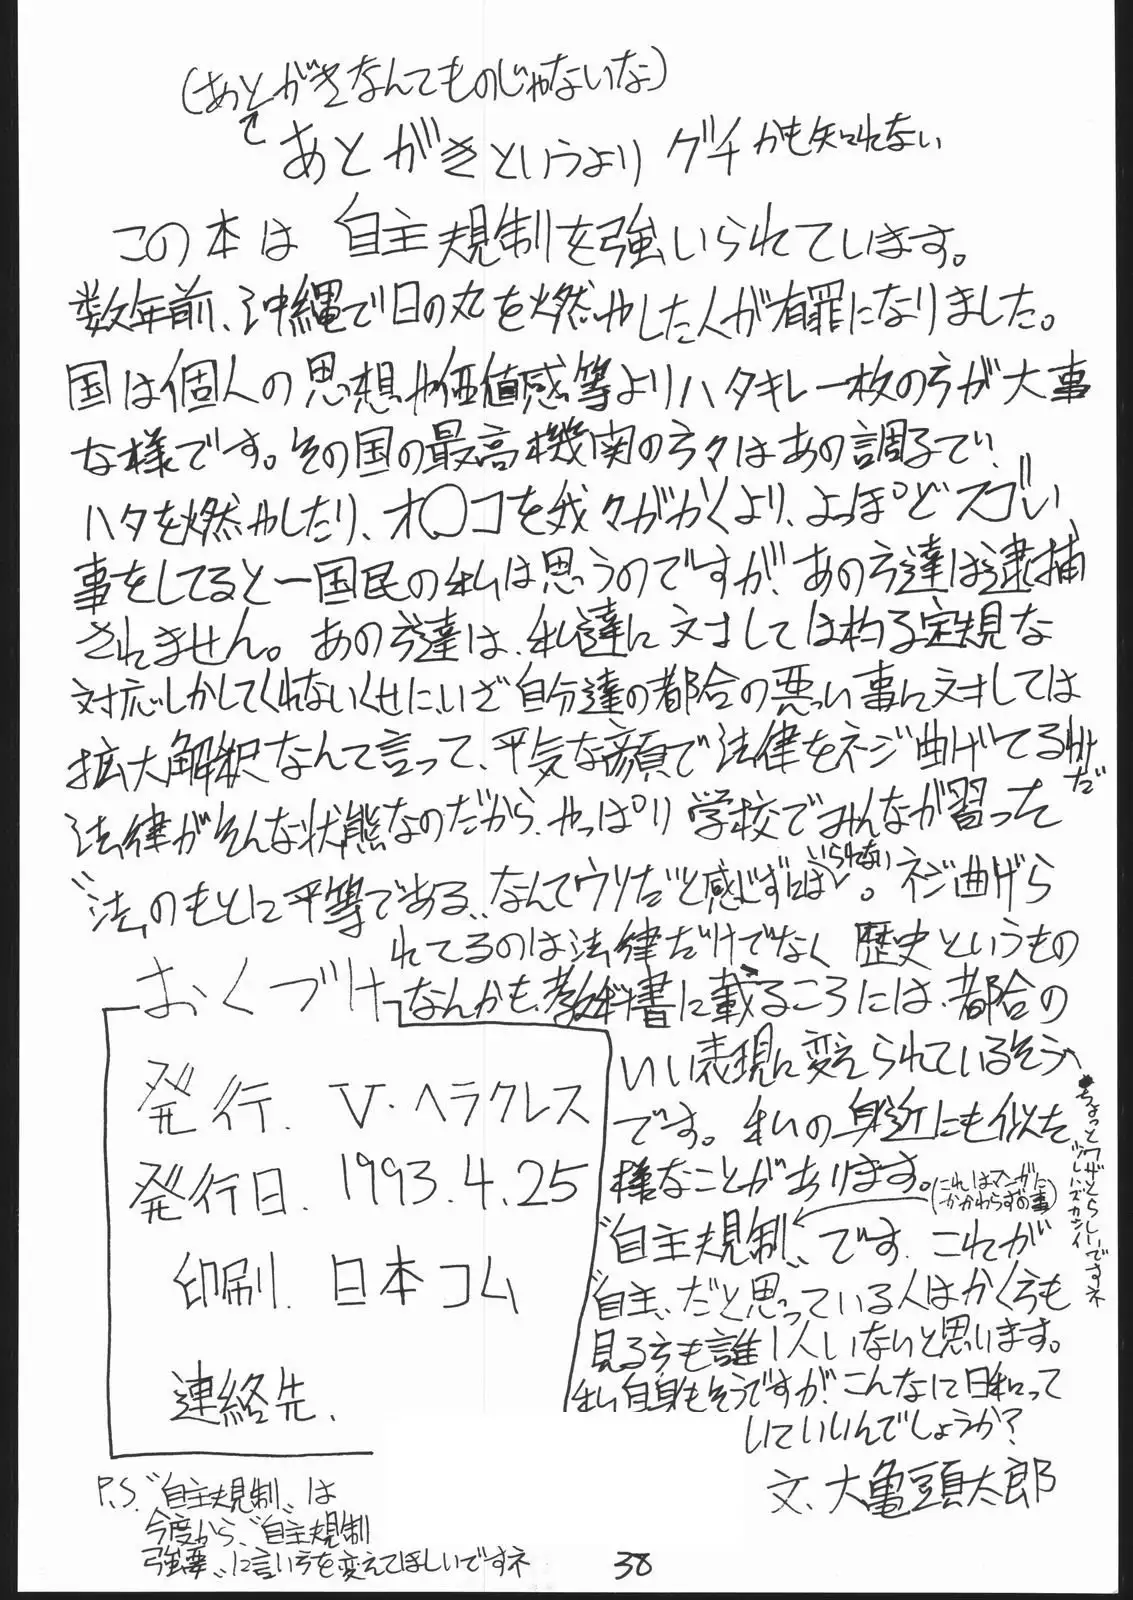 (あとがきなんてものじゃないな)
あとがきというより グチかも知れない
この本は 自主規制を強いられています。
数年前、沖縄で日の丸を燃やした人が有罪になりました。
国は個人の思想や価値感等よりハタキレ一枚の方が大事
な様です。その国の最高機関の方々はあの調子で、
ハタを燃やしたり、オ〇コを我々がかくより、よっぽどスゴい
事をしてると一国民の私は思うのですが、あの方達は逮捕
されません。あの方達は、私達に対しては杓る定規な
対応しかしてくれないくせに、いざ自分達の都合の悪い事に対しては
拡大解釈なんて言って、平気な顔で法律をネジ曲げてるわけだ
法律がそんな状態なのだから、やっぱり学校でみんなが習った
〝法のもとに平等である〟なんてウソだと感じずにはいられない。ネジ曲げら
れてるのは法律だけでなく 歴史というもの
なんかも、教科書に載るころには、都合の
いい表現に変えられているそう
です。私の身近にも似た
様なことがあります。
(これはマンガにかかわらずの事)
〝自主規制〟です。これが
〝自主〟だと思っている人はかく方も
見る方も誰1人いないと思います。
私自身もそうですが、こんなに日和って
いていいんでしょうか?
文、大亀頭太郎
ちょっとワザとらしいですネ
ハズカシイ
おくづけ
発行、V・ヘラクレス
発行日、1993.4.25
印刷、日本コム
連絡先、
P.S.〝自主規制〟は
今度から、〝自主規制
強要〟に言い方を変えてほしいですネ
38